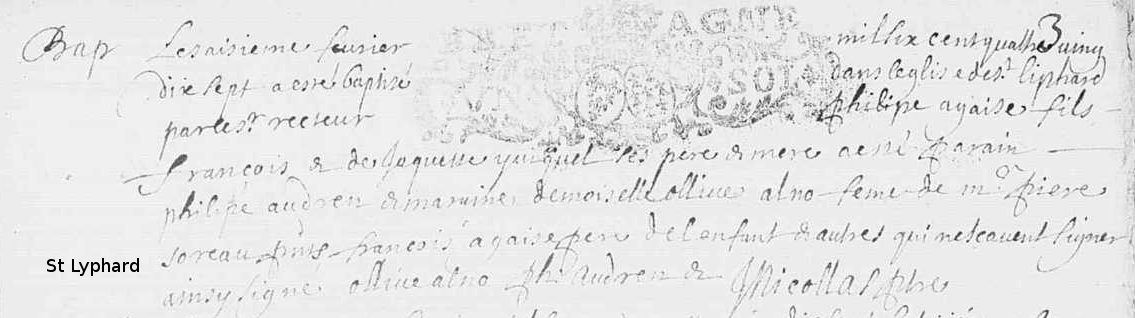 Bap Lesaisieme feurier millix cent quattre uing
3
dix sept a esté baptisé dans leglise de st liphard
par le sr recteur philipe agaise fils
françois & de Jaquette ses père & mere a esté parain
philipe audren & maraine demoiselle olliue alno feme de mr piere
soreau françois agaise pere de lenfant & autres qui ne scauent signer
ainsy signe olliue alno ph: audren & Nicollas ptre
St Lyphard